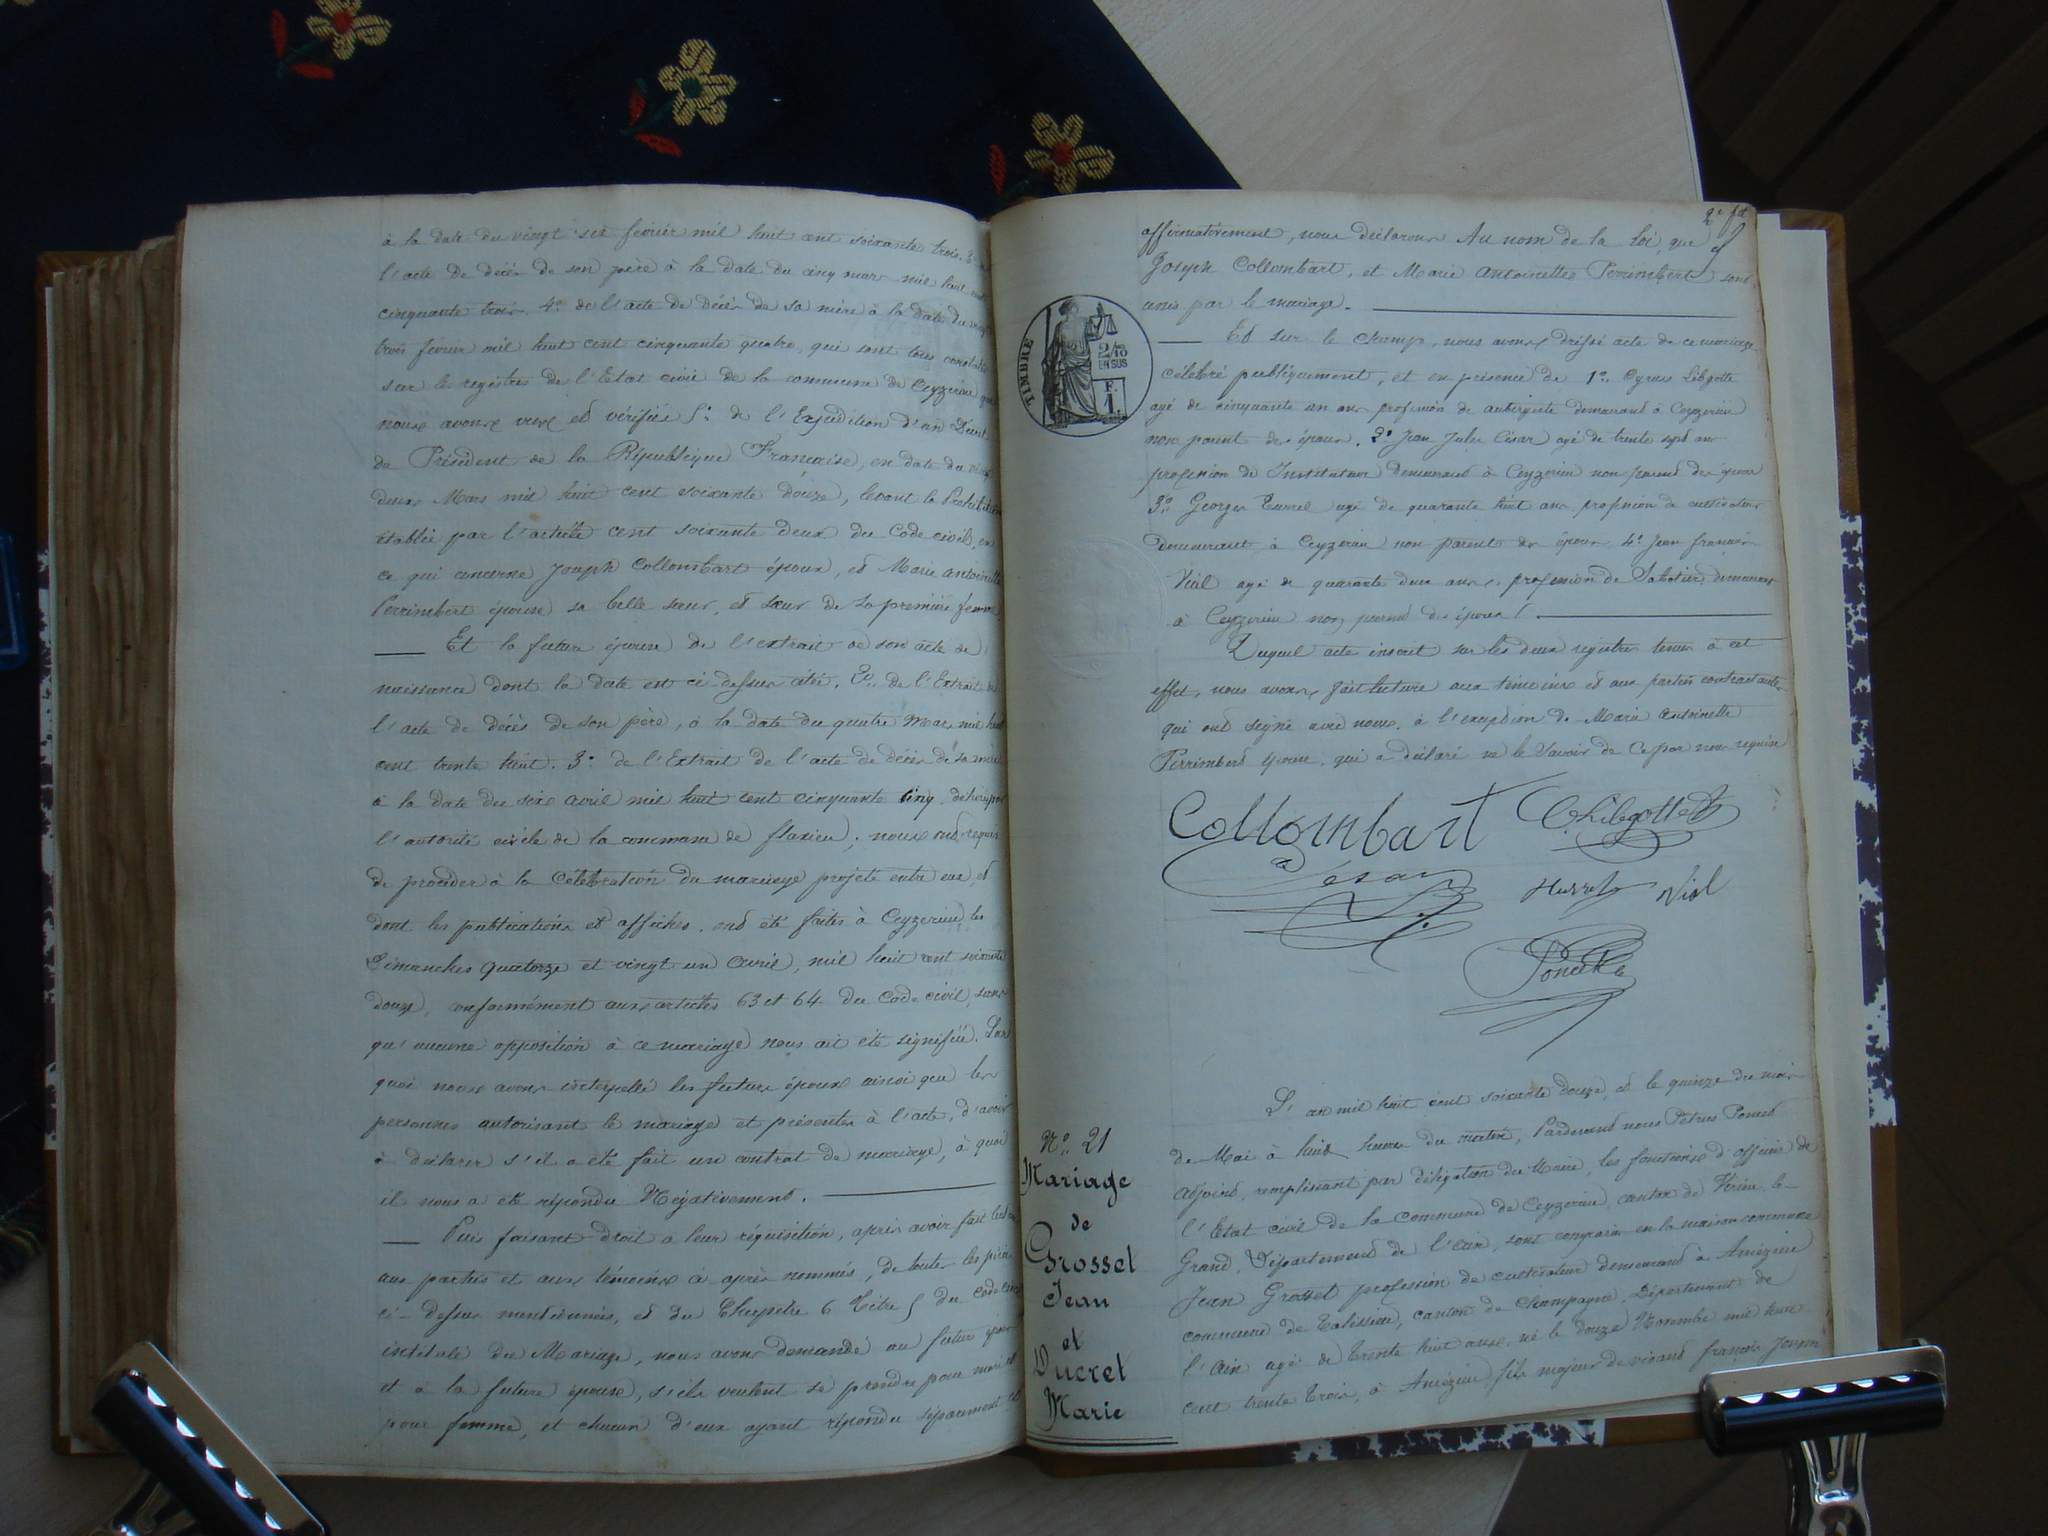 à la date du vingt six février mil huit cent soixante trois. 3°
l'acte de décès de son père à la date du cinq mars mil huit cent
cinquante trois. 4° de l'acte de décès de sa mère à la date du vingt
trois février mil huit cent cinquante quatre, qui sont tous
sur les registres de l'Etat civil de la commune de Ceyzerieu que
nous avons vus et vérifiés 5° de l'Expédition d'un Décret
du Président de la République Française, en date du
deux Mars mil huit cent soixante douze, levant la Prohibition
établie par l'article cent soixante deux du Code civil, en
ce qui concerne Joseph Collombart époux, et Marie Antoinette
Perrimbert épouse sa belle sœur, et sœur de sa première femme
Et la future épouse de l'extrait de son acte de
naissance dont la date est ci-dessus citée. 2° de l'Extrait de
l'acte de décès de son père, à la date du quatre Mars mil huit
cent trente huit. 3° de l'Extrait de l'acte de décès de sa mère
à la date du six avril mil huit cent cinquante cinq, délivrés par
l'autorité civile de la commune de flaxieu; nous ont requis
de procéder à la Célébration du mariage projeté entre eux, et
dont les publications et affiches, ont été faites à Ceyzerieu les
Dimanches quatorze et vingt un Avril, mil huit cent soixante
douze, conformément aux articles 63 et 64 du Code civil, sans
qu'aucune opposition à ce mariage nous ait été signifiée. Sur
quoi nous avons interpellé les futurs époux ainsi que les
personnes autorisant le mariage et présentes à l'acte, d'avoir
à déclarer s'il a été fait un contrat de mariage, à quoi
il nous a été répondu Négativement.
Puis faisant droit à leur réquisition, après avoir fait lecture
aux parties et aux témoins ci après nommés, de toutes les pièces
ci-dessus mentionnées, et du Chapitre 6 Titre 5 du Code civil
intitulé du Mariage, nous avons demandé au futur époux
et à la future épouse, s'ils veulent se prendre pour mari et
pour femme, et chacun d'eux ayant répondu séparément et
affirmativement, nous déclarons Au nom de la Loi, que
Joseph Collombart, et Marie Antoinette Perrimbert sont
unis par le mariage.
TIMBRE
2/10
EN SUS
F.
1
Et sur le champ, nous avons dressé acte de ce mariage
célébré publiquement, et en présence de 1°
agé de cinquante un ans profession de aubergiste demeurant à Ceyzerieu
non parent des époux. 2° Jean Jules César agé de trente sept ans
profession de Instituteur demeurant à Ceyzerieu non parent des époux
3° Georges agé de quarante huit ans profession de cultivateur
demeurant à Ceyzerieu non parent des époux 4° Jean francois
Vial agé de quarante deux ans, profession de Sabotier demeurant
à Ceyzerieu non parent des époux.
Duquel acte inscrit sur les deux registres tenus à cet
effet, nous avons fait lecture aux témoins et aux parties contractantes
qui ont signé avec nous, à l'exception de Marie Antoinette
Perrimbert épouse, qui a déclaré ne le savoir de ce par nous requise
Collombart
César
Vial
Poncet
N° 21
Mariage
de
Grosset
Jean
et
Ducret
Marie
L'an mil huit cent soixante douze, et le quinze du mois
de Mai à huit heures du matin, Pardevant nous Pétrus Poncet
adjoint, remplissant par délégation du Maire, les fonctions d'officier de
l'Etat civil de la commune de Ceyzerieu, canton de Virieu le
Grand, Département de l'Ain, sont comparus en la maison commune
Jean Grosset profession de cultivateur demeurant à Ameyzieu
commune de Talissieu, canton de Champagne, Département de
l'Ain agé de trente huit ans, né le douze Novembre mil huit
cent trente trois, à Ameyzieu fils majeur de vivant françois Joseph